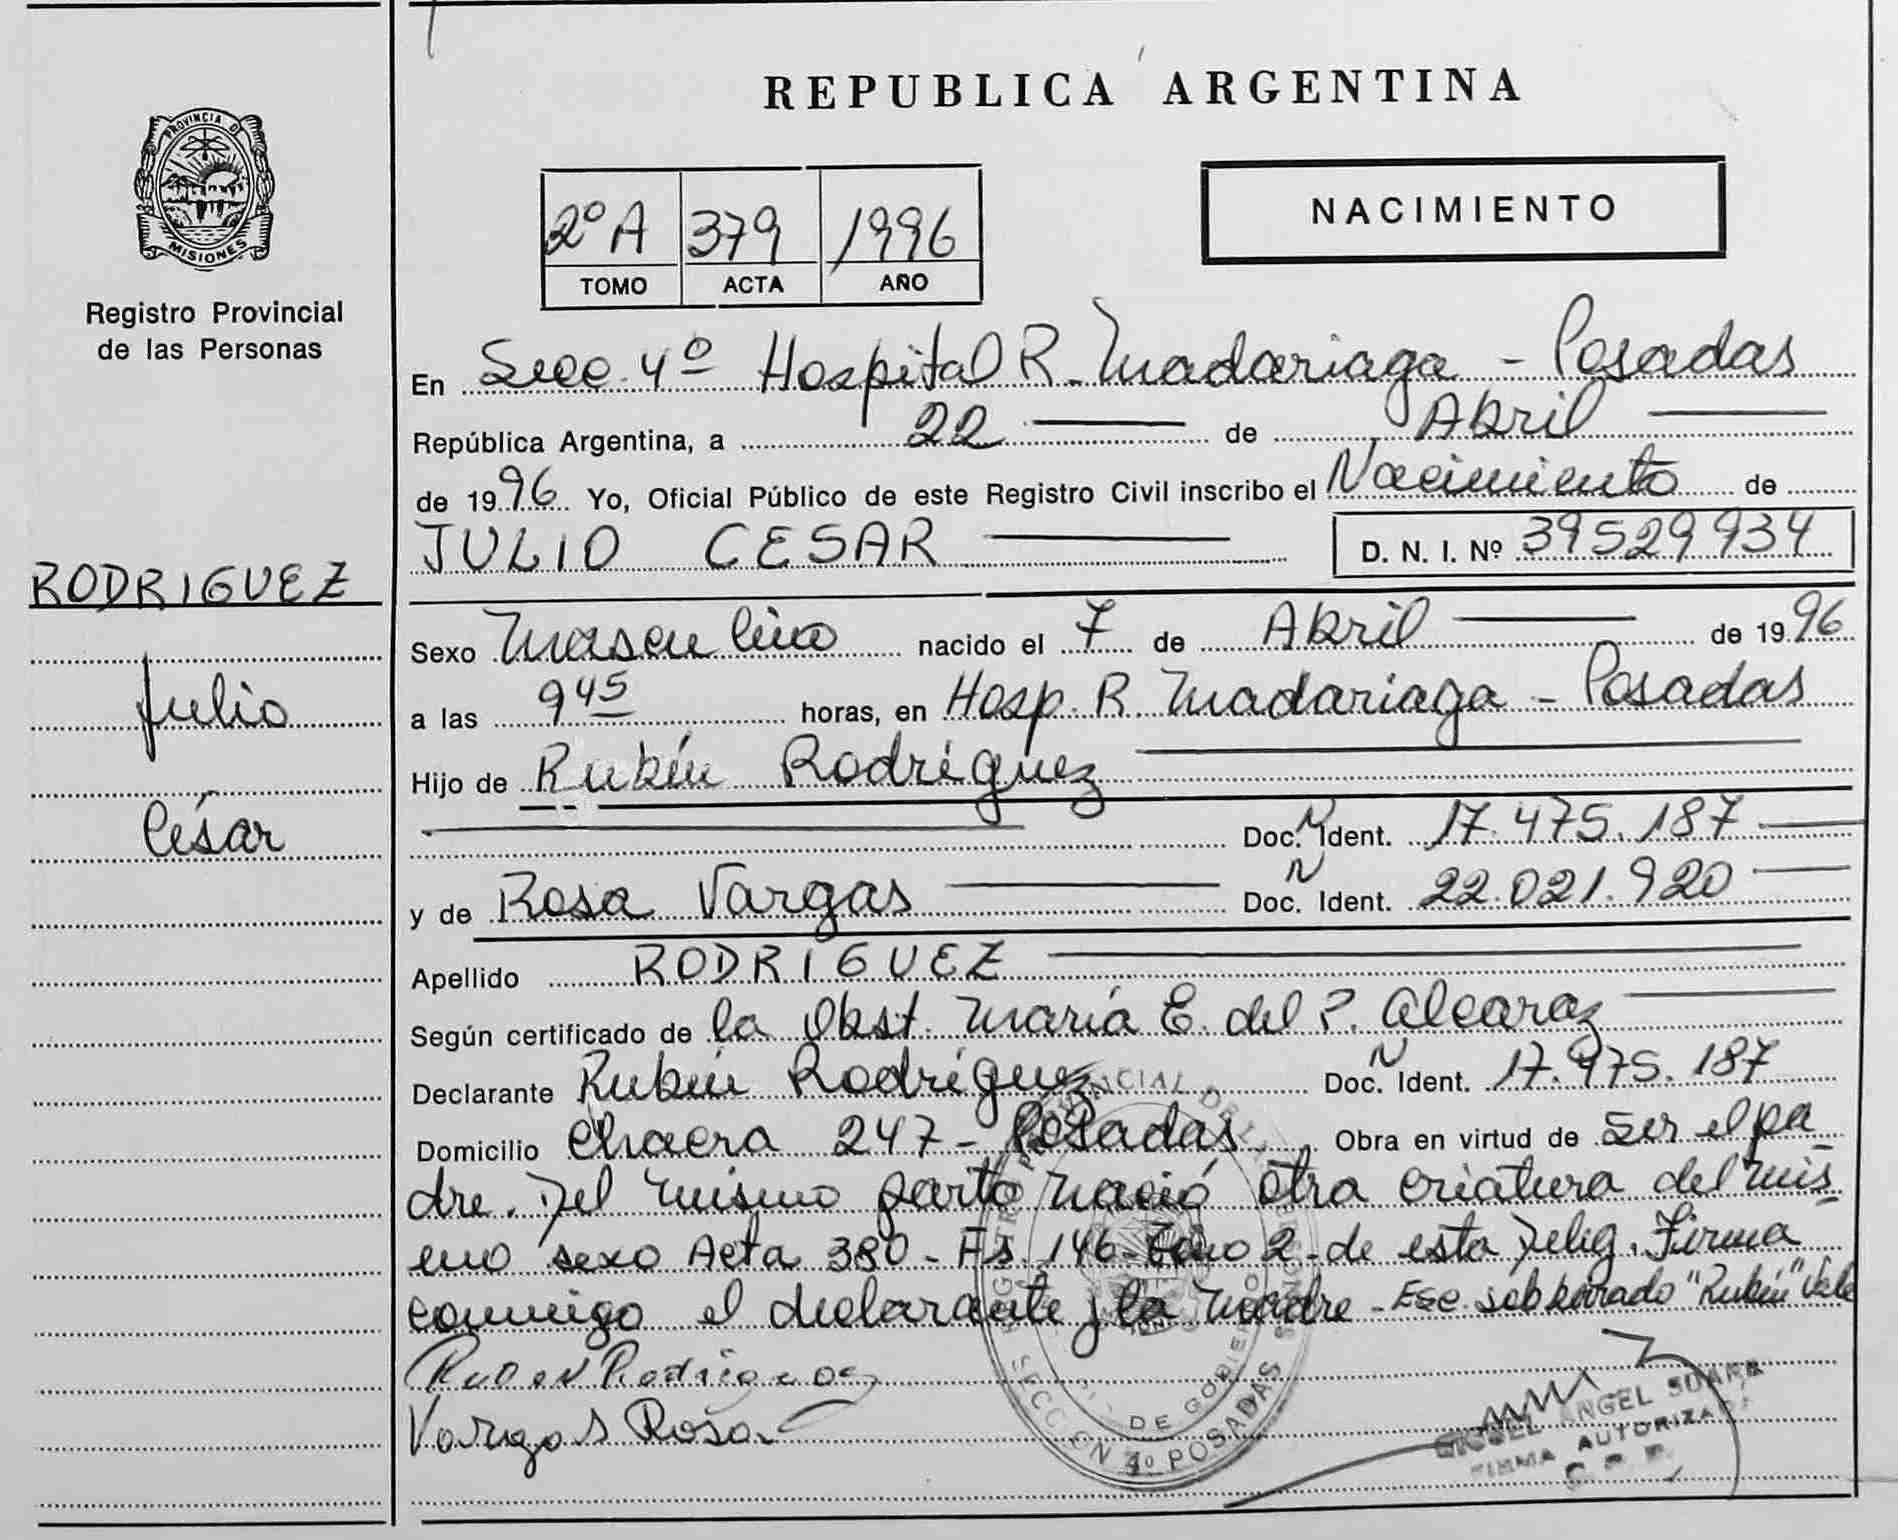 REPUBLICA ARGENTINA
PROVINCIA DE
MISIONES
Registro Provincial
de las Personas
NACIMIENTO
2º A 379 1996
TOMO ACTA AÑO
En Secc. 4º Hospital R. Madariaga - Posadas
República Argentina, a 22 de Abril
de 1996 Yo, Oficial Público de este Registro Civil inscribo el Nacimiento de
JULIO CESAR D. N. I. Nº 39529934
RODRIGUEZ
Julio
César
Sexo Masculino nacido el 7 de Abril de 1996
a las 9 45 horas, en Hosp. R. Madariaga - Posadas
Hijo de Rubén Rodríguez
Doc. N Ident. 17.475.187
y de Rosa Vargas Doc. N Ident. 22.021.920
Apellido RODRIGUEZ
Según certificado de la Obst. María E. del P. Alcaraz
Declarante Rubén Rodríguez Doc. N Ident. 17.475.187
Domicilio Chacra 247 - Posadas Obra en virtud de ser el pa
dre. Del mismo parto nació otra criatura del mis
mo sexo Acta 380 - Fs. 146 - Tomo 2 - de esta Deleg. Firma
conmigo el declarante y la madre - Esc. sob borrado "Rubén" Vale
Ruben Rodriguez
Vargas Rosa
SECCION 4º POSADAS
DE GOBIERNO
MIGUEL ANGEL SUAREZ
FIRMA AUTORIZADA